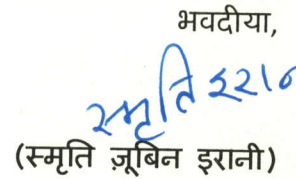 भवदीया,
स्मृति इरानी
(स्मृति ज़ूबिन इरानी)